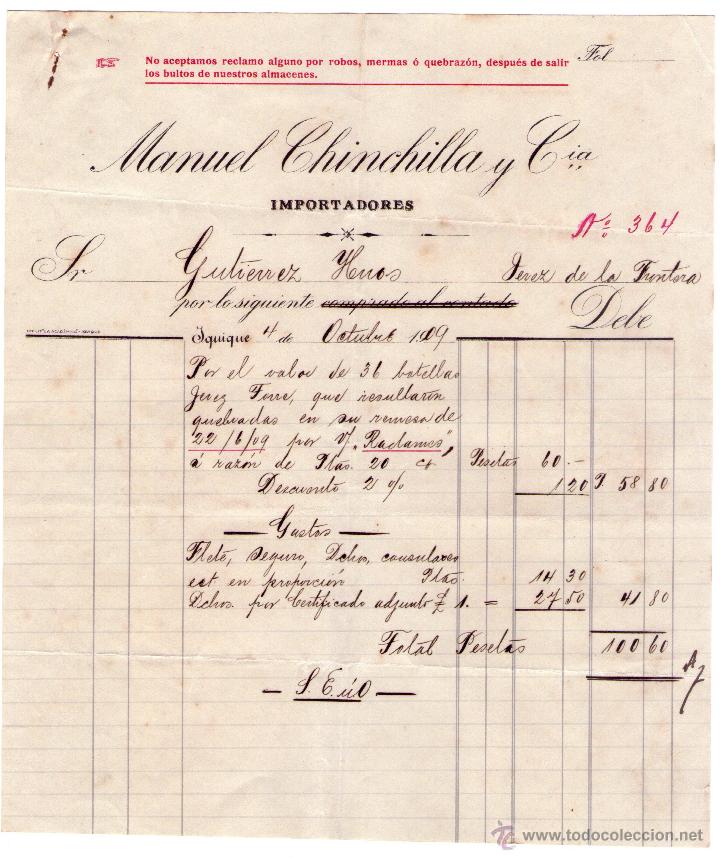 No aceptamos reclamo alguno por robos, mermas ó quebrazón, después de salir
los bultos de nuestros almacenes.
Fol
Manuel Chinchilla y Cia
IMPORTADORES
Nº 364
Sr Gutierrez Hnos Jerez de la Frontera
por lo siguiente comprado al contado Debe
Iquique 4 de Octubre 1909
Por el valor de 36 botellas
Jerez Fino, que resultaron
quebradas en su remesa de
22/6/09 por V/ "Radames",
á razón de Ptas. 20 c/ Pesetas 60.-
Descuento 2 % 1 20 P. 58 80
Gastos
Flete, seguro, Dchos, consulares
ect en proporción Ptas. 14 30
Dchos. por Certificado adjunto £ 1. = 27 50 41 80
Total Pesetas 100 60
S. E. ú O
www.todocoleccion.net